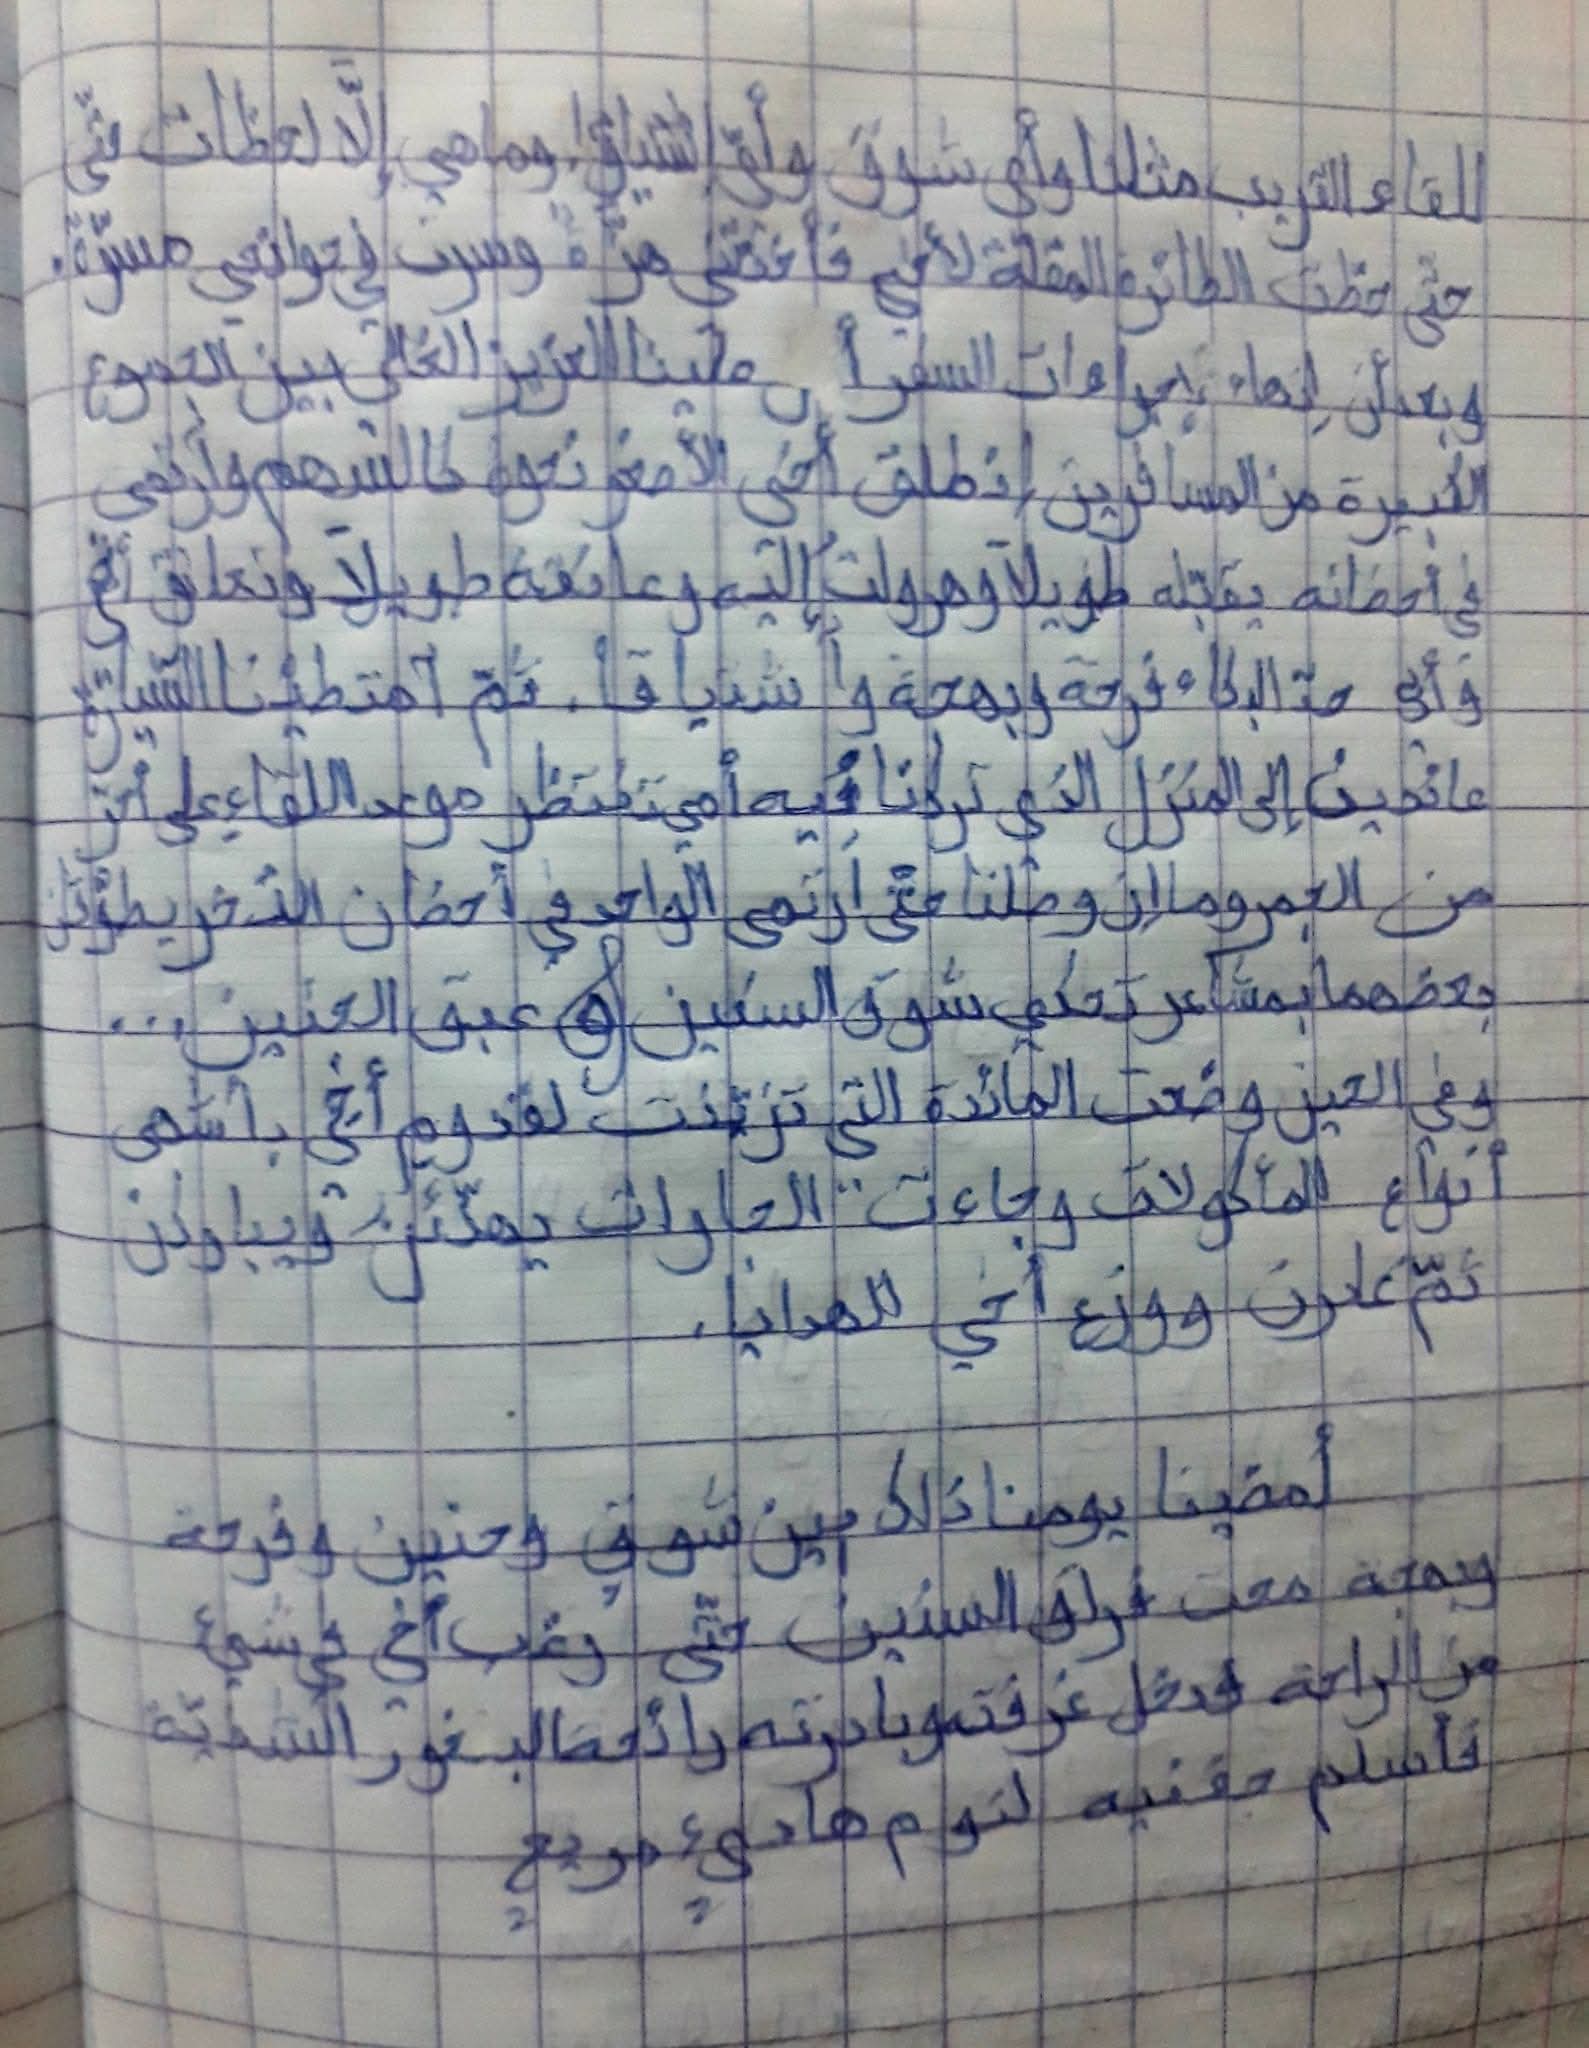 للقاء القريب مثلنا وأي شوق وأيّ إشتياق! وما هي إلّا لحظات
حتّى حطّت الطائرة المقلّة لأخي فأخذتني هزّة وسرت في جوانحي مسرّة.
وبعد أن إنهاء إجراءات السفر أ علينا العزيز الغالي بين الجموع
الكبيرة من المسافرين إنطلق أخي الأصغر نحوه كالسّهم وأرتمى
في أحضانه يقبّله طويلا وهرولت إليه وعانقته طويلاً وتعانق أخي
وأبي حدّ البكاء فرحة وبهجة وأشتياقا. ثمّ امتطينا السّيارة
عائدين إلى المنزل الذي تركنا فيه أمي تنتظر موعد اللقاء على أحرّ
من الجمر وما إن وصلنا حتّى أرتمى الواحد في أحضان الآخر يطوّقان
بعضهما بمشاعر تحكي شوق السنين و عبق الحنين...
وفي الحين وضعت المائدة التي تزيّنت لقدوم أخي بأشهى
أنواع المأكولات وجاءت الجارات يهنّئن ويباركن
ثمّ غادرن ووزّع أخي الهدايا.
أمضينا يومنا ذلك بين شوق وحنين وفرحة
وبهجة محت فراق السنين حتّى رغب أخي في شيئ
من الراحة فدخل غرفته وبادرته رائحة البخور الشذيّة
فأسلم جفنيه لنوم هادئ مريح